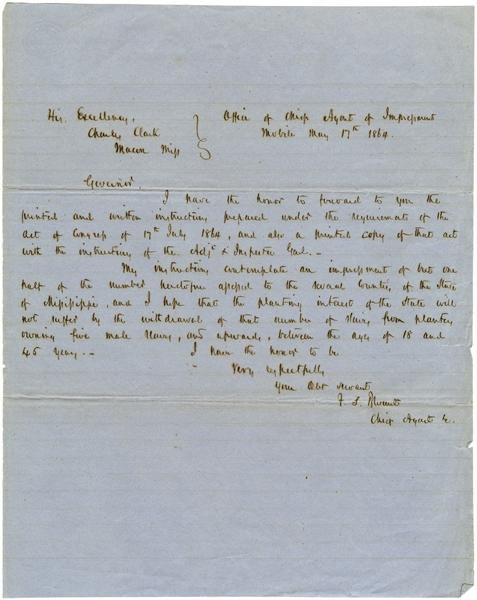 His Excellency, Office of Chief Agent of Impressment
Charles Clark Mobile May 17th 1864.
Macon Miss
Governor,
I have the honor to forward to you the
printed and written instructions prepared under the requirements of the
Act of Congress of 17th July 1864, and also a printed copy of that act
with the instructions of the Adjt & Inspector Genl. –
My instructions contemplate an impressment of but one
half of the number heretofore assessed to the several Counties, of the State
of Mississippi, and I hope that the planting interest of the State will
not suffer by the withdrawal of that number of slaves, from planters
owning five male slaves, and upwards, between the ages of 18 and
45 years. –
I have the honor to be
Very respectfully
Your Obt servant
Chief Agent &c.